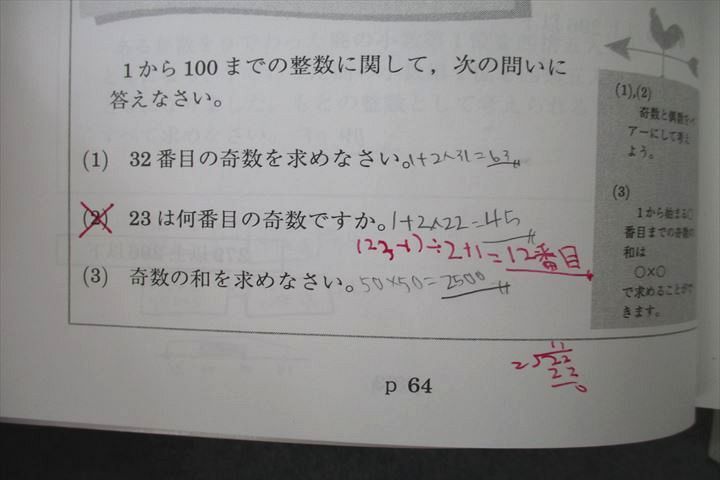 1から100までの整数に関して，次の問いに
答えなさい。
(1) 32番目の奇数を求めなさい。1+2×31=63
(2) 23は何番目の奇数ですか。1+2×22=45
(23-1)÷2+1=12番目
(3) 奇数の和を求めなさい。50×50=2500
(1),(2)
奇数と偶数をペ
アーにして考え
よう。
(3)
1から始まる○
番目までの奇数の
和は
○×○
で求めることがで
きます。
11
2)22
22
0
p 64